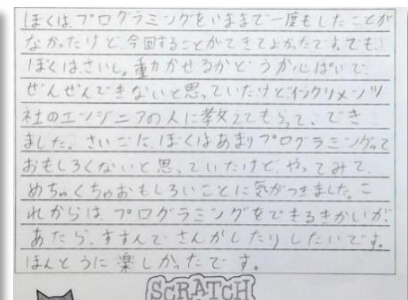 ぼくは、プログラミングをいままで一度もしたことが
なかったけど、今回することができてよかったです。でも、
ぼくはさいしょ、動かせるかどうか心ぱいで
ぜんぜんできないと思っていたけどインクリメンツ
社のエンジニアの人に教えてもらって、でき
ました。さいごに、ぼくはあまりプログラミングって
おもしろくないと思っていたけど、やってみて、
めちゃくちゃおもしろいことに気がつきました。こ
れからは、プログラミングをできるきかいが
あたら、すすんでさんかしたりしたいです。
ほんとうに楽しかったです。
SCRATCH